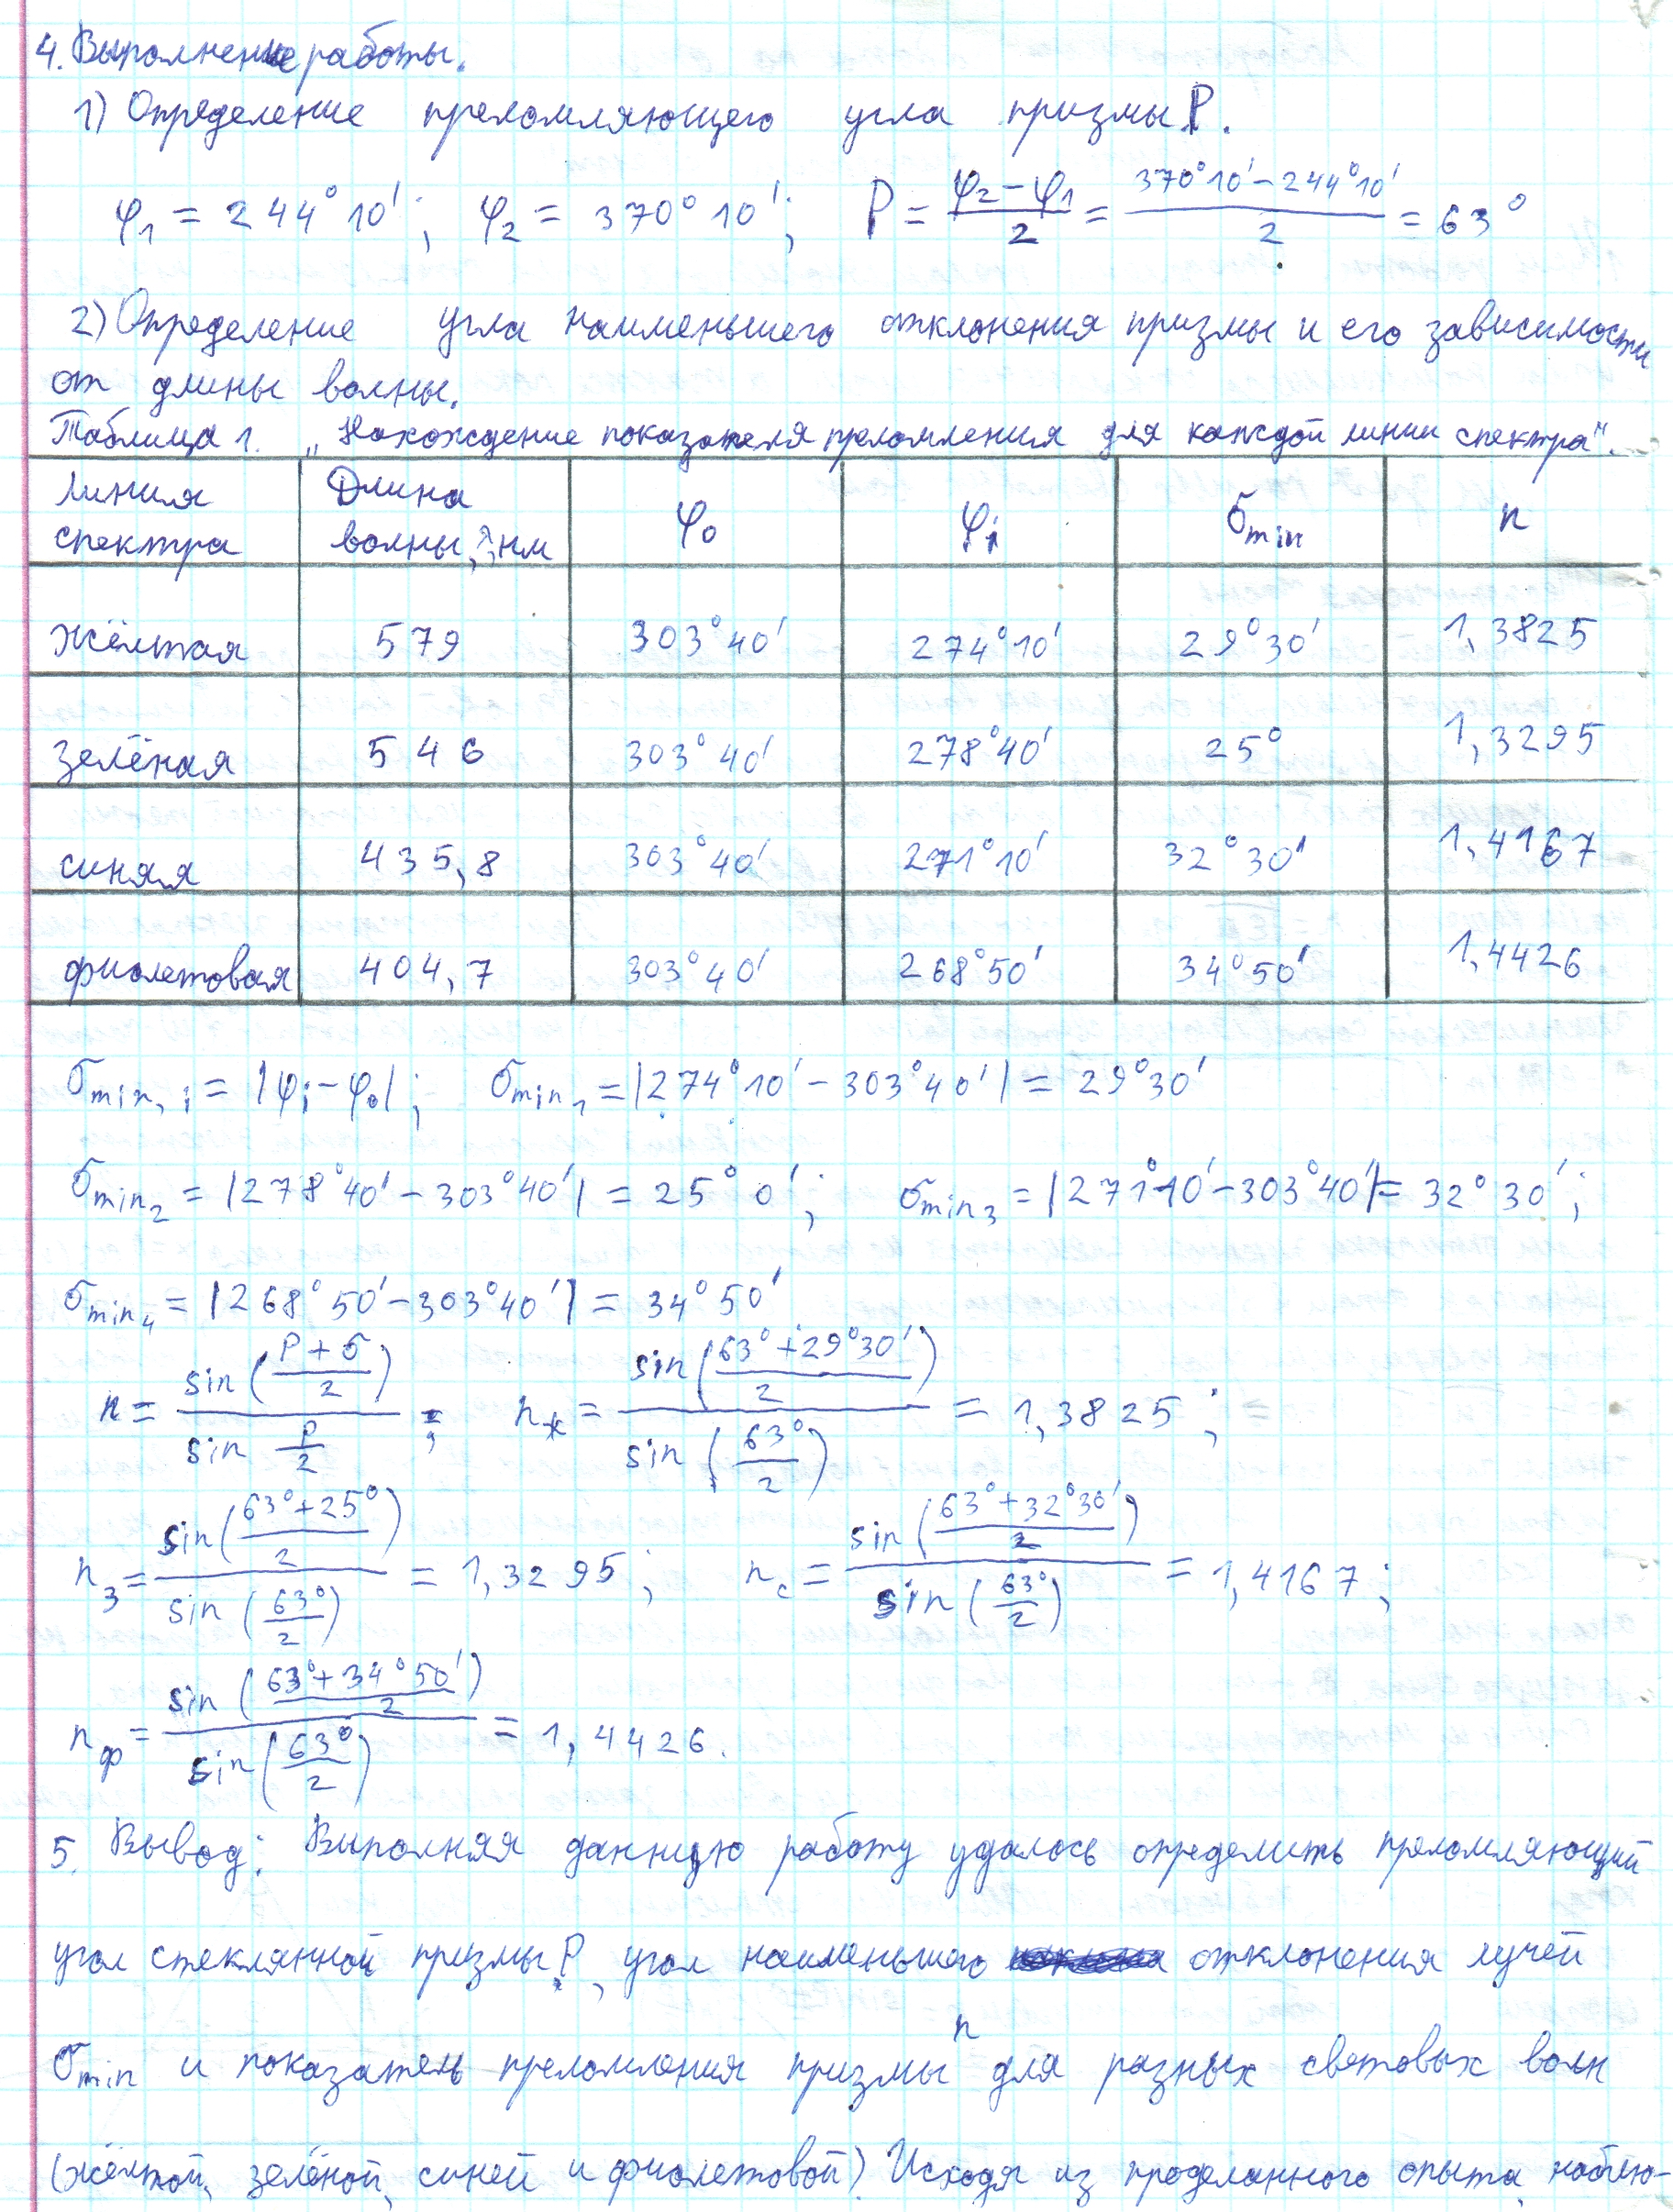 4. Выполнение работы.
1) Определение преломляющего угла призмы P.
φ₁ = 244°10'; φ₂ = 370°10'; P = (φ₂ − φ₁)/2 = (370°10' − 244°10')/2 = 63°
2) Определение угла наименьшего отклонения призмы и его зависимости
от длины волны.
Таблица 1. „Нахождение показателя преломления для каждой линии спектра".
Линия спектра | Длина волны, λ, нм | φ₀ | φᵢ | σmin | n
жёлтая | 579 | 303°40' | 274°10' | 29°30' | 1,3825
зелёная | 546 | 303°40' | 278°40' | 25° | 1,3295
синяя | 435,8 | 303°40' | 271°10' | 32°30' | 1,4167
фиолетовая | 404,7 | 303°40' | 268°50' | 34°50' | 1,4426
σmin,i = |φᵢ − φ₀|; σmin₁ = |274°10' − 303°40'| = 29°30'
σmin₂ = |278°40' − 303°40'| = 25°0'; σmin₃ = |271°10' − 303°40'| = 32°30';
σmin₄ = |268°50' − 303°40'| = 34°50'
n = sin((P + σ)/2) / sin(P/2); nж = sin((63° + 29°30')/2) / sin(63°/2) = 1,3825;
nз = sin((63° + 25°)/2) / sin(63°/2) = 1,3295; nс = sin((63° + 32°30')/2) / sin(63°/2) = 1,4167;
nф = sin((63° + 34°50')/2) / sin(63°/2) = 1,4426.
5. Вывод: Выполняя данную работу удалось определить преломляющий
угол стеклянной призмы P, угол наименьшего отклонения лучей
σmin и показатель преломления призмы n для разных световых волн
(жёлтой, зелёной, синей и фиолетовой). Исходя из проделанного опыта, наблю-